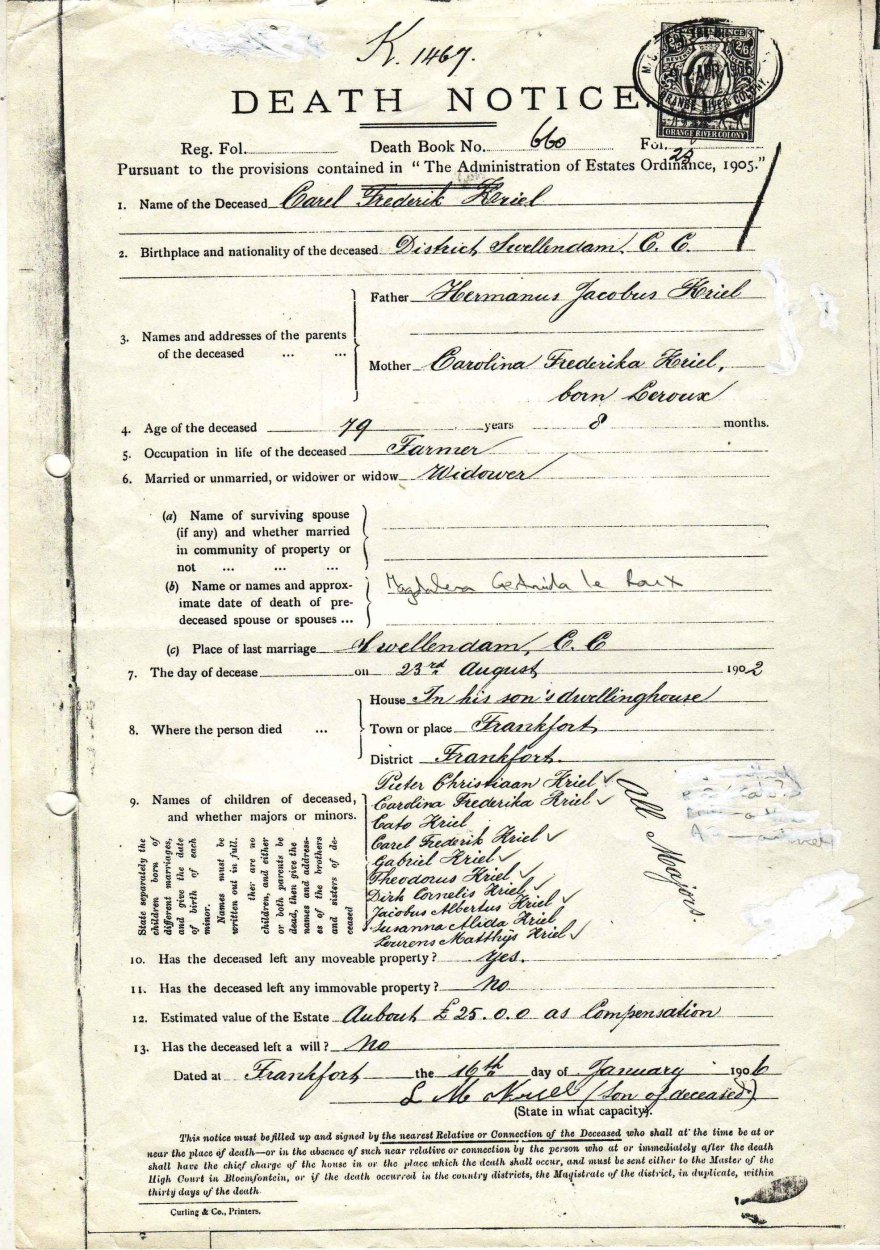 K. 1467.
DEATH NOTICE.
ORANGE RIVER COLONY
Reg. Fol. Death Book No. 660 Fol. 23
Pursuant to the provisions contained in "The Administration of Estates Ordinance, 1905."
1. Name of the Deceased Carel Frederik Kriel
2. Birthplace and nationality of the deceased District Swellendam, C. C.
Father Hermanus Jacobus Kriel
3. Names and addresses of the parents
of the deceased ... ...
Mother Carolina Frederika Kriel,
born Leroux
4. Age of the deceased 79 years 8 months.
5. Occupation in life of the deceased Farmer
6. Married or unmarried, or widower or widow Widower
(a) Name of surviving spouse
(if any) and whether married
in community of property or
not ... ... ...
(b) Name or names and approx-
imate date of death of pre-
deceased spouse or spouses ...
Magdalena Gertruida le Roux
(c) Place of last marriage Swellendam, C. C
7. The day of decease on 23rd August 1902
House In his son's dwellinghouse
8. Where the person died ... Town or place Frankfort
District Frankfort.
9. Names of children of deceased,
and whether majors or minors.
State separately the
children born of
different marriages,
and give the date
of birth of each
minor.
Names must be
written out in full.
If there are no
children, and either
or both parents be
dead, then give the
names and address-
es of the brothers
and sisters of de-
ceased
Pieter Christiaan Kriel ✓
Carolina Frederika Kriel ✓
Cato Kriel
Carel Frederik Kriel ✓
Gabriel Kriel ✓
Theodorus Kriel ✓
Dirk Cornelis Kriel ✓
Jacobus Albertus Kriel ✓
Susanna Alida Kriel
Lourens Matthijs Kriel ✓
All Majors.
10. Has the deceased left any moveable property? Yes.
11. Has the deceased left any immovable property? No
12. Estimated value of the Estate Aubout £25.0.0 as Compensation
13. Has the deceased left a will? No
Dated at Frankfort the 16th day of January 1906
L M Kriel (son of deceased)
(State in what capacity).
This notice must be filled up and signed by the nearest Relative or Connection of the Deceased who shall at the time be at or
near the place of death—or in the absence of such near relative or connection by the person who at or immediately after the death
shall have the chief charge of the house in or the place which the death shall occur, and must be sent either to the Master of the
High Court in Bloemfontein, or if the death occurred in the country districts, the Magistrate of the district, in duplicate, within
thirty days of the death.
Curling & Co., Printers.